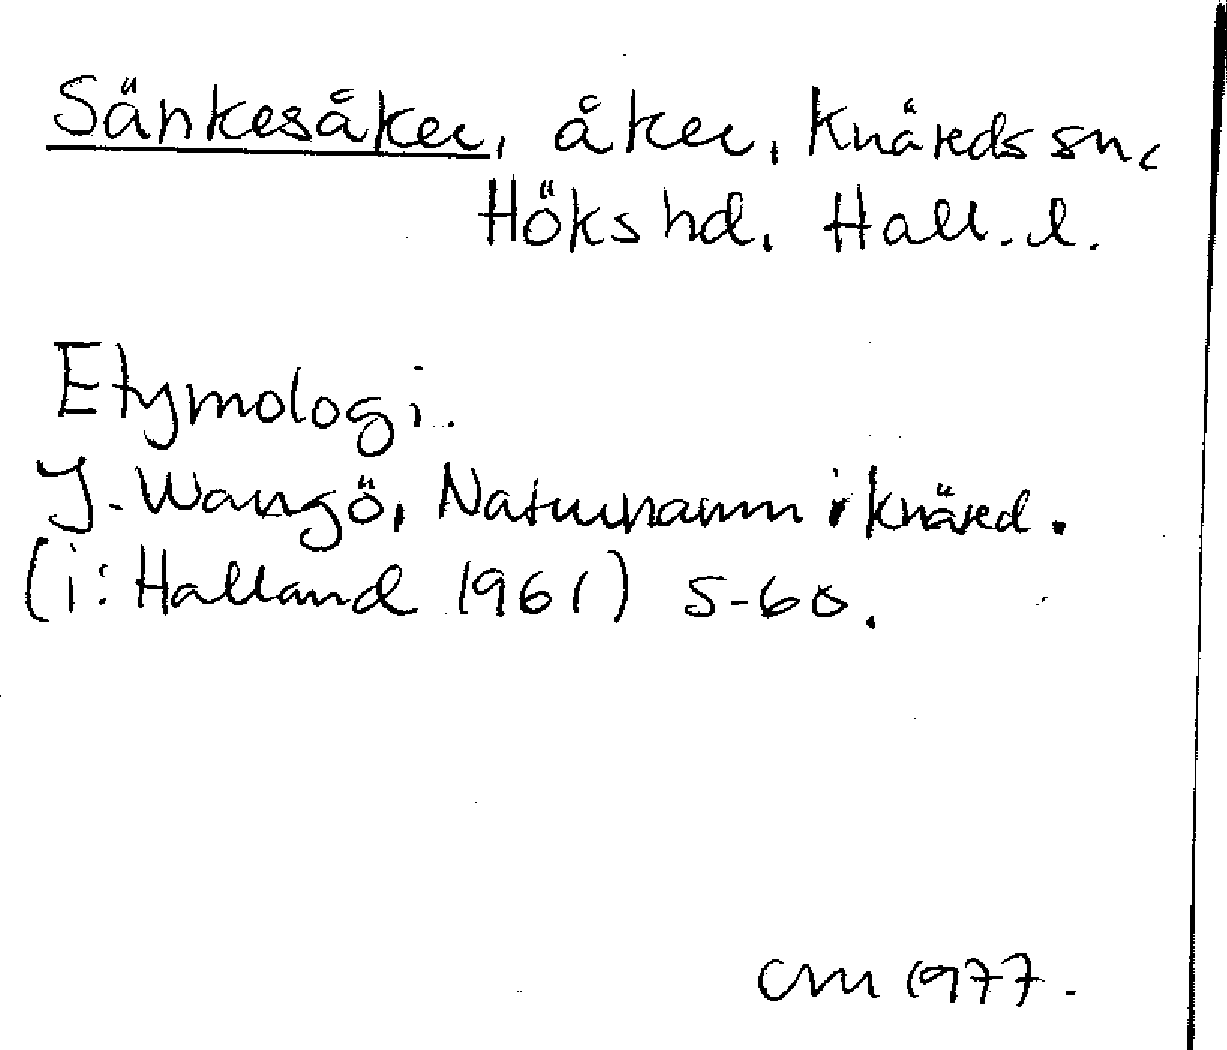 Sänkesåker, åker, Knäreds sn,
Höks hd. Hall. l.
Etymologi.
J. Wangö, Naturnamn i Knäred.
(i: Halland 1961) s-60.
CM 1977.